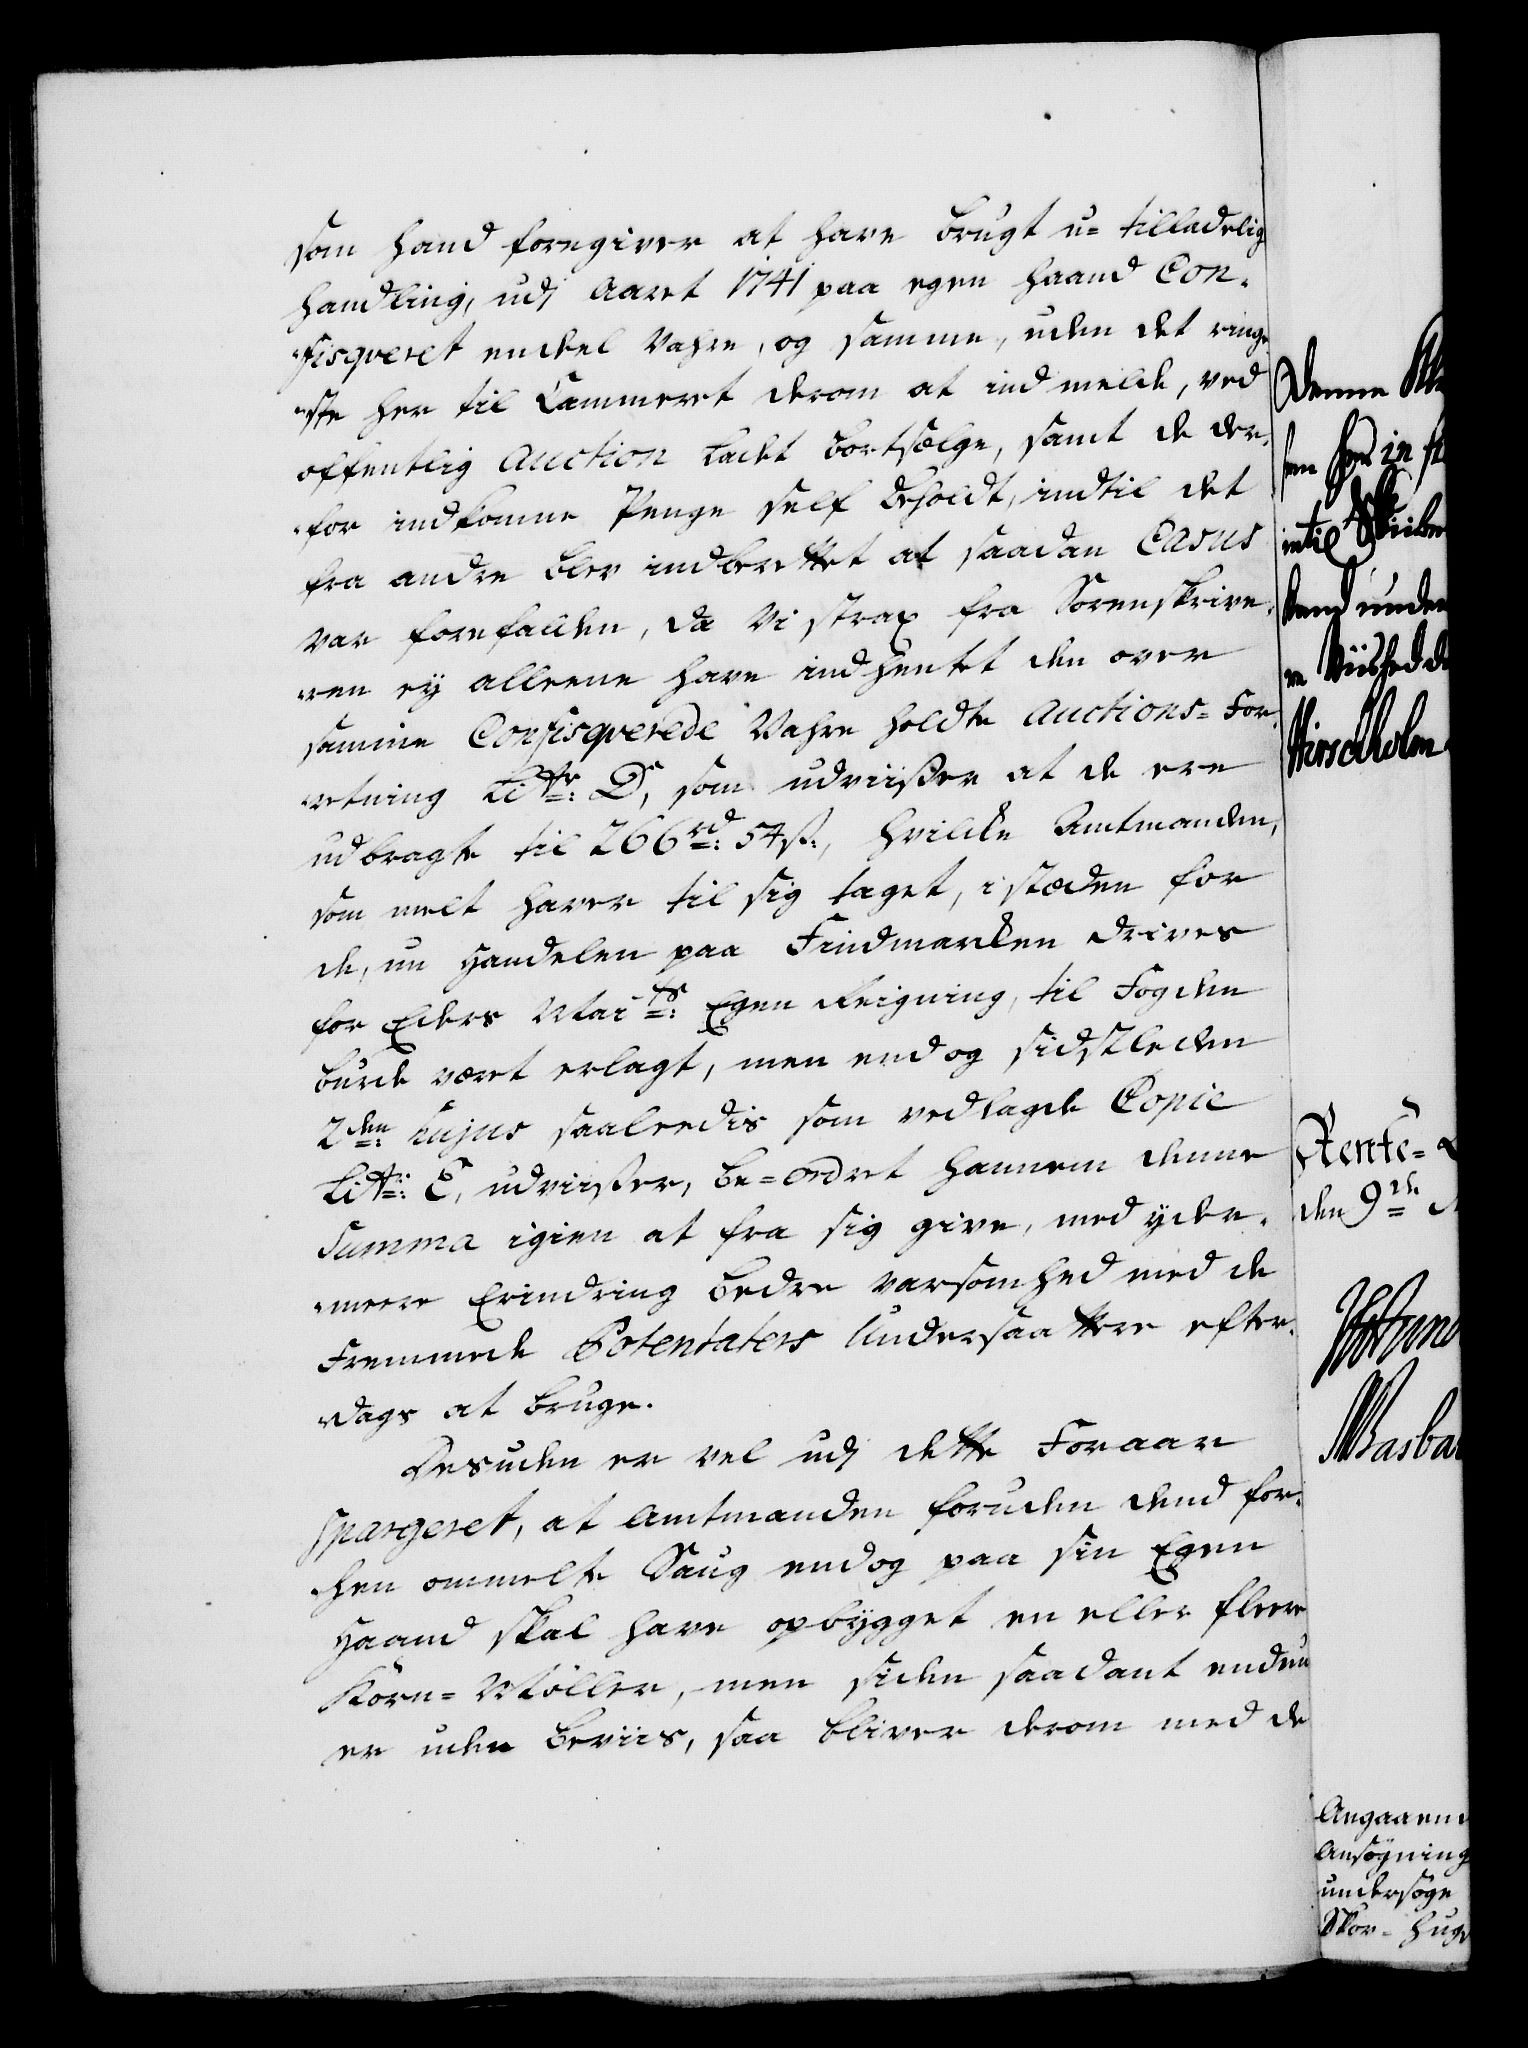 som hand foregiver at have brugt u= tilladelig
handling, udj Aaret 1741 paa egen haand Con-
fisqveret endeel Vahre, og samme, uden det ringe
ste her til Cammeret derom at ind melde, ved
offentlig Auction ladet bortsælge, samt de der-
for indkomne Penge self beholdt, indtil det
fra andre blev indberettet at saadan Casus
var forefalden, da Vi strax fra Sorenskrive-
ren ey alleene have indhentet den over
samme Confisqverede Vahre holdte Auctions= For-
retning Littr: D, som udviiser at de ere
udbragte til 266 rd: 54 ß:, hvilcke Amtmanden,
som melt haver til sig taget, i stæden for
de, nu Handelen paa Findmarcken drives
for Eders Mai ts: Egen Reigning, til Fogden
burde været erlagt, men end og sidstleden
2den: hujus saaleedis som vedlagde Copie
Littr: E, udviiser, be=ordret hannem denne
Summa igien at fra sig give, med yder-
meere Erindring bedre varsomhed med de
Fremmede Potentaters Undersaattere efter-
dags at bruge.
Desuden er vel udj dette Foraar
spargeret, at Amtmanden foruden dend for-
hen ommelte Saug endog paa sin Egen
Haand skal have opbygget en eller fleere
Korn= Møller, men siden saadant endnu
er uden beviis, saa bliver derom med de
Denne
in
hand under
Hirschholm
Rente=
den 9de
Angaaen
Ansøgning
undersøge
Skov- hug